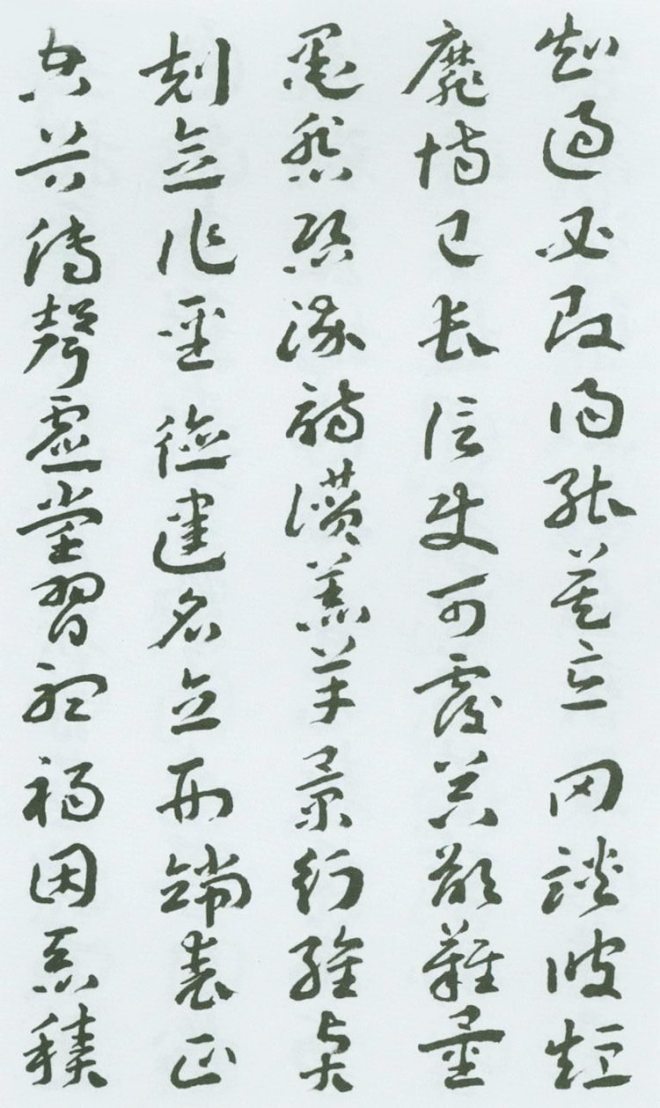 知過必改得能莫忘罔談彼短
靡恃己長信使可覆器欲難量
墨悲絲染詩讚羔羊景行維賢
剋念作聖德建名立形端表正
空谷傳聲虛堂習聽禍因惡積